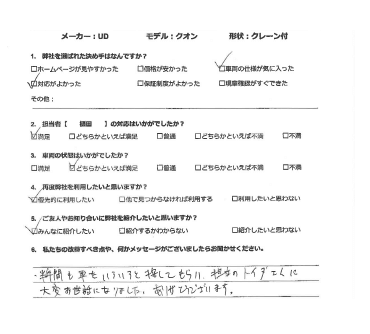 メーカー：UD　モデル：クオン　形状：クレーン付
1. 弊社を選ばれた決め手はなんですか？
□ホームページが見やすかった　□価格が安かった　☑車両の仕様が気に入った
☑対応がよかった　□保証制度がよかった　□現車確認がすぐできた
その他：
2. 担当者【　】の対応はいかがでしたか？
☑満足　□どちらかといえば満足　□普通　□どちらかといえば不満　□不満
3. 車両の状態はいかがでしたか？
□満足　☑どちらかといえば満足　□普通　□どちらかといえば不満　□不満
4. 再度弊社を利用したいと思いますか？
☑優先的に利用したい　□他で見つからなければ利用する　□利用したいと思わない
5. ご友人やお知り合いに弊社を紹介したいと思いますか？
☑みんなに紹介したい　□紹介するかわからない　□紹介したいと思わない
6. 私たちの改善すべき点や、何かメッセージがございましたらお聞かせください。
・時間も車もいろいろと探してもらい、担当のトイダさんに
大変お世話になりました。ありがとうございます。